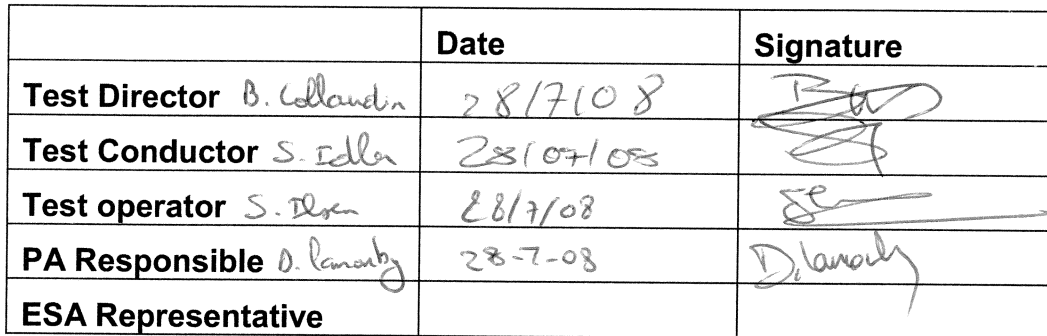 Date Signature
Test Director B. Collaudin 28/7/08
Test Conductor S. Idler 28/07/08
Test operator S. Ilsen 28/7/08
PA Responsible D. 28-7-08
ESA Representative